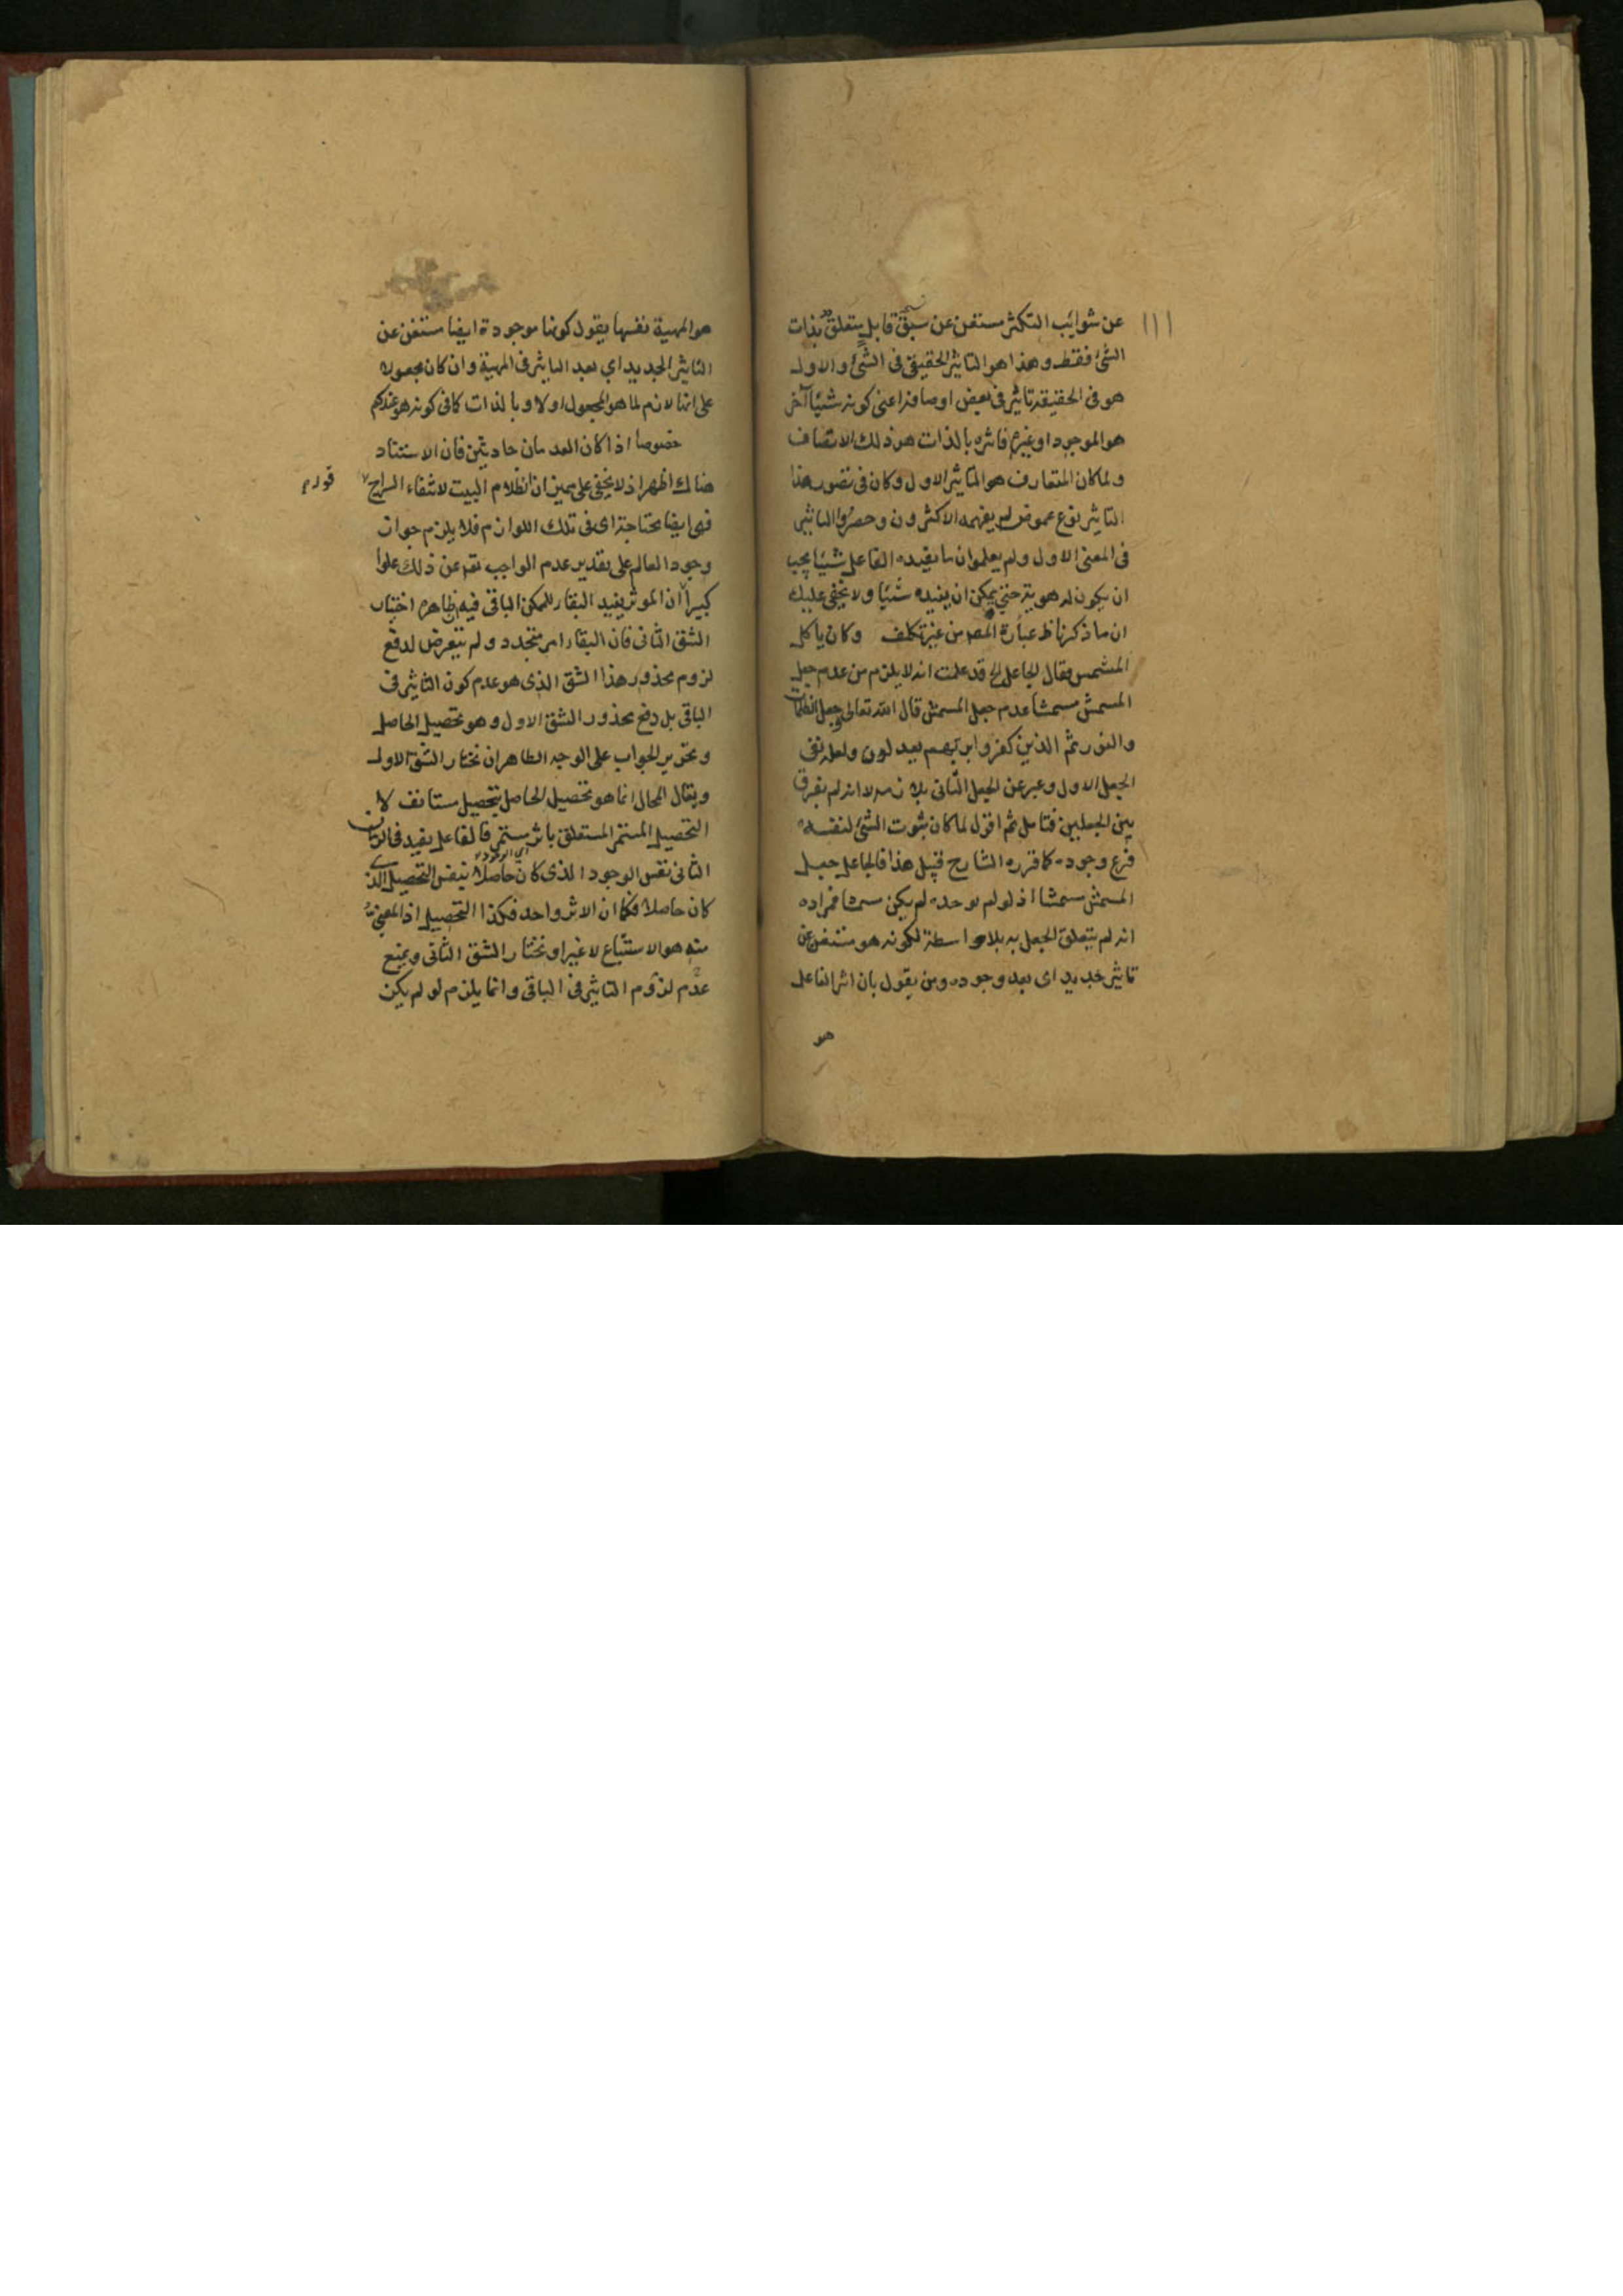 عن شوائب التكثر مستغن عن سبق قابل يتعلق بذات
الشئ فقط وهذا هو التاثير الحقيقى فى الشئ والاول
هو فى الحقيقة تاثير فى بعض اوصافه اعنى كونه شيئا آخر
هو الموجود او غيره فاثره بالذات هو ذلك الاتصاف
ولما كان المتعارف هو التاثير الاول وكان فى تصور هذا
التاثير نوع غموض لم يفهمه الاكثرون وحصروا التاثير
فى المعنى الاول ولم يعلموا ان ما يفيده الفاعل شيئا يجب
ان يكون له هوية حتى يمكن ان يفيده شيئا ولا يخفى عليك
ان ما ذكرنا ظ عبارة المصر من غير تكلف وكان ياكل
المشمس فقال الجاعل الخ قد علمت انه لا يلزم من عدم جعل
المسمش مسمشا عدم جعل المسمش قال الله تعالى وجعل الظلمات
والنور ثم الذين كفروا بربهم يعدلون ولعله نفى
الجعل الاول وعبر عن الجعل الثانى بلازمه لا انه لم يفرق
بين الجعلين فتامل ثم اقول لما كان ثبوت الشئ لنفسه
فرع وجوده كما قرره الشارح قبيل هذا فالجاعل جعل
المسمش مسمشا اذ لو لم يوجده لم يكن مسمشا فمراده
انه لم يتعلق الجعل به بلا واسطة لكونه هو مستغن عن
تاثير جديد اى بعد وجوده ومن يقول بان اثر الفاعل
هو
هو المهية نفسها يقول كونها موجودة ايضا مستغن عن
التاثير الجديد اي بعد التاثير فى المهية وان كان مجعوله
على انها لازم لما هو المجعول اولا وبالذات كافى كونه هو عندكم
خصوصا اذا كان العدمان حادثين فان الاستناد
هناك اظهر اذ لا يخفى على مميز ان اظلام البيت لانتفاء السراج
قوله
فهى ايضا محتاجة اى فى تلك اللوازم فلا يلزم جواز
وجود العالم على تقدير عدم الواجب تعه عن ذلك علوا
كبيرا ان الموثر يفيد البقاء للممكن الباقى فيه ظاهره اختيار
الشق الثانى فان البقاء امر متجدد ولم يتعرض لدفع
لزوم محذور هذا الشق الذى هو عدم كون التاثير فى
الباقى بل دفع محذور الشق الاول وهو تحصيل الحاصل
وتحرير الجواب على الوجه الظاهر ان نختار الشق الاول
ويقال المحال انما هو تحصيل الحاصل بتحصيل مستانف لا
التحصيل المستمر المتعلق باثر مستمر فالفاعل يفيد فى الزمان
الثانى نفس الوجود الذى كان حاصلا بنفس التحصيل الذى
كان حاصلا فكما ان الاثر واحد فكذا التحصيل اذ المعنى
منه هو الاستتباع لا غير او نختار الشق الثانى ويمنع
عدم لزوم التاثير فى الباقى وانما يلزم لو لم يكن